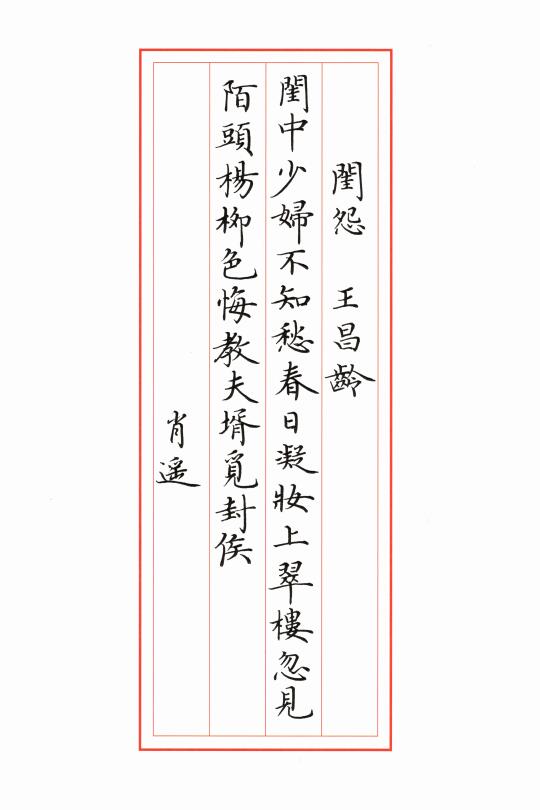 閨怨 王昌齡
閨中少婦不知愁春日凝妝上翠樓忽見
陌頭楊柳色悔教夫壻覓封侯
肖遥